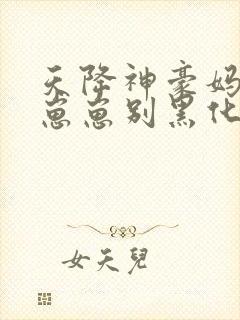 天降神豪妈
崽崽别黑化
女天兒